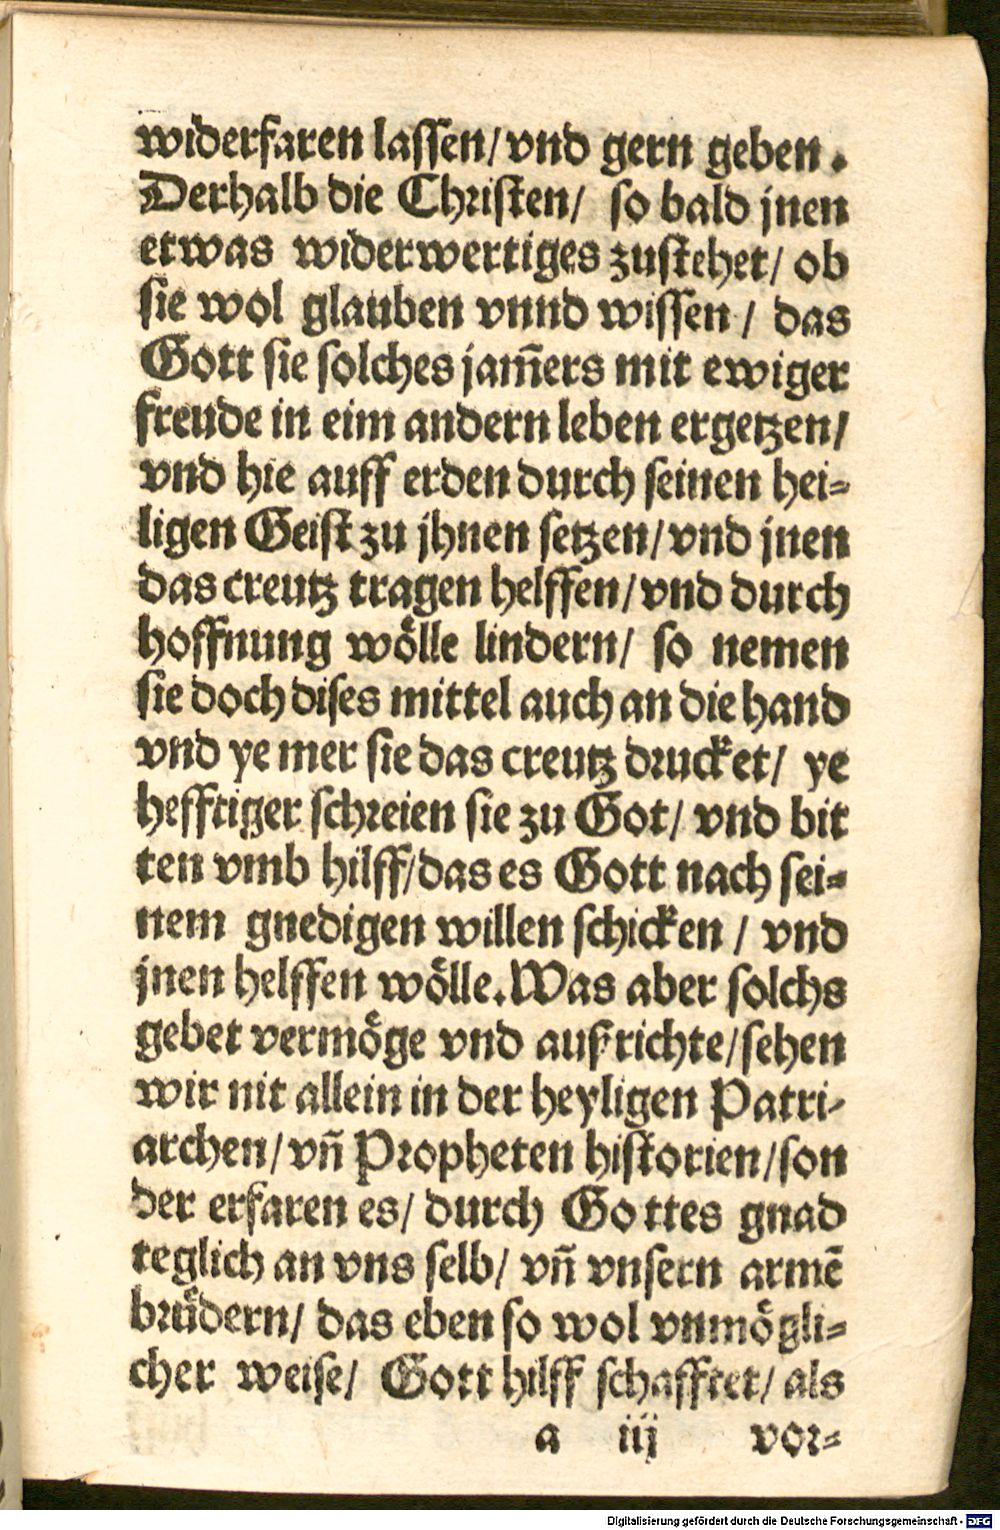 widerfaren lassen/vnd gern geben.
Derhalb die Christen/ so bald jnen
etwas widerwertiges zustehet/ ob
sie wol glauben vnnd wissen / das
Gott sie solches jam̃ers mit ewiger
freude in eim andern leben ergetzen/
vnd hie auff erden durch seinen hei=
ligen Geist zu jhnen setzen/vnd jnen
das creutz tragen helffen/vnd durch
hoffnung wo̊lle lindern/ so nemen
sie doch dises mittel auch an die hand
vnd ye mer sie das creutz drucket/ ye
hefftiger schreien sie zu Got/ vnd bit
ten vmb hilff/das es Gott nach sei=
nem gnedigen willen schicken / vnd
jnen helffen wo̊lle.Was aber solchs
gebet vermo̊ge vnd außrichte/sehen
wir nit allein in der heyligen Patri-
archen/vñ Propheten historien/son
der erfaren es/ durch Gottes gnad
teglich an vns selb/ vñ vnsern armē
brůdern/ das eben so wol vnmo̊gli=
cher weise/ Gott hilff schafftet/ als
a iij vor=
Digitalisierung gefördert durch die Deutsche Forschungsgemeinschaft - DFG